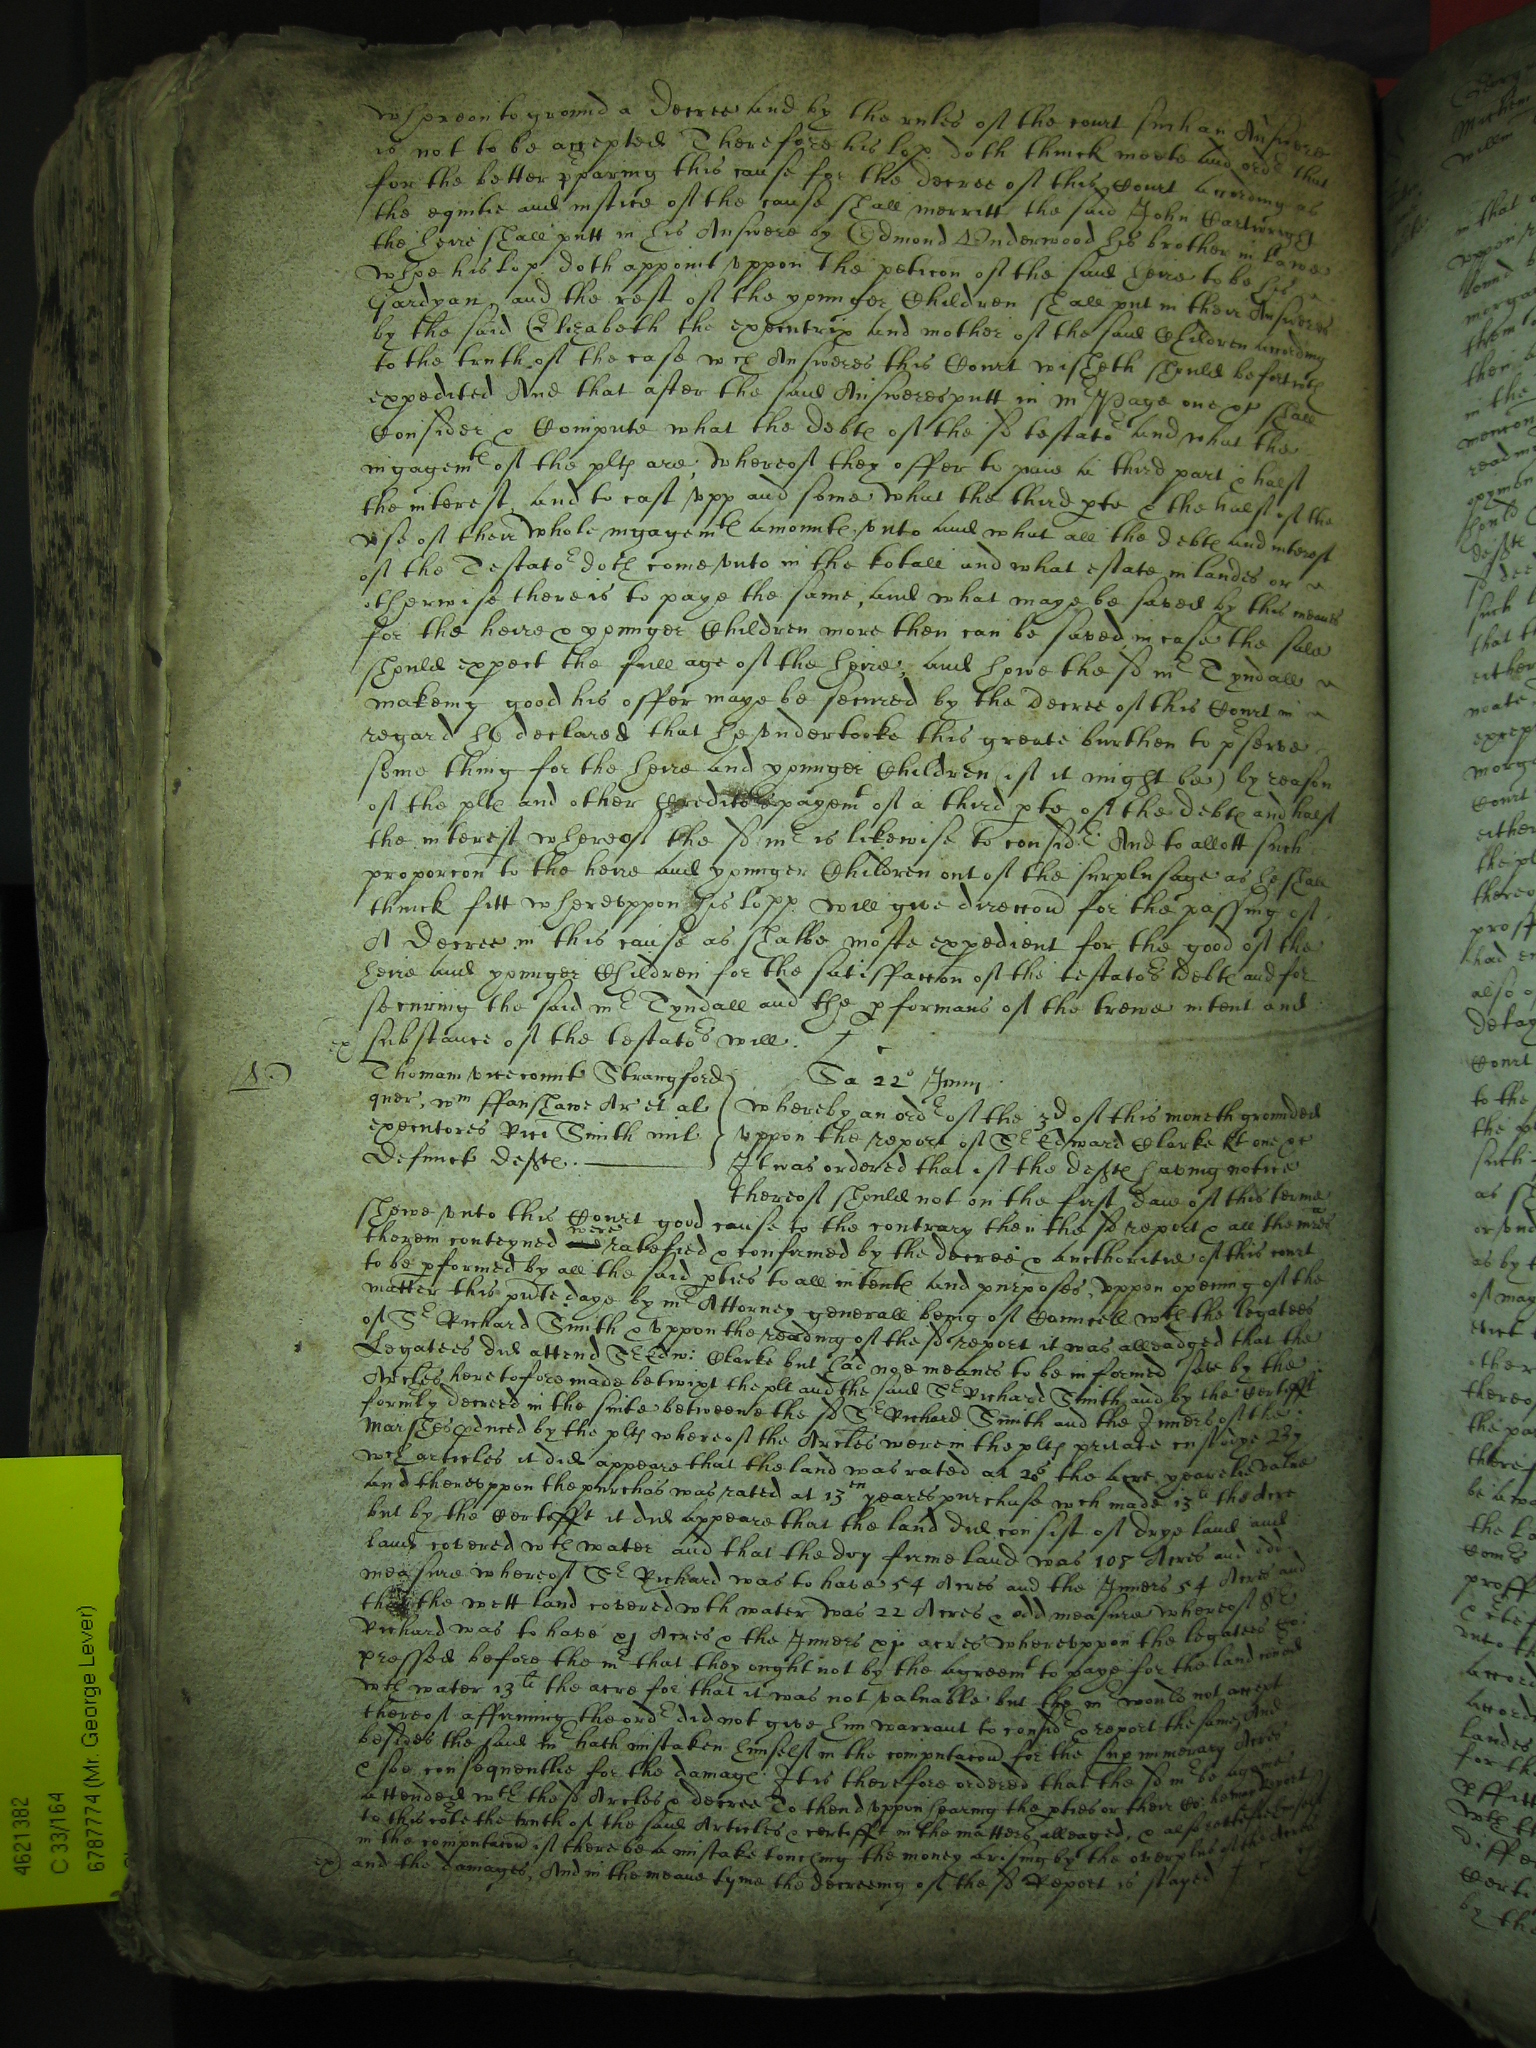 whereon to ground a decree and by the rules of the court such an Answere
is not to be accepted Therefore his lop doth thinck meete and ordr that
for the better pparing this cause for the decree of this Court according as
the equitie and iustice of the cause shall merritt the said John Cartwright
the heire shall putt in his Answere by Edmond Underwood his brother in lawe
whoe his lop doth appoint uppon the peticon of the said heire to be his
Gardyan, and the rest of the younger Children shall put in their Answeres
by the said Elizabeth the executrix and mother of the said Children according
to the truth of the case wch Answeres this Court wisheth should be forthwth
expedited And that after the said Answeres putt in mr Page one &c shall
Consider & Compute what the debts of the sd testator and what the
ingagemts of the plts are, whereof they offer to paie a third part & half
the interest, and to cast upp and some what the third pte & the half of the
use of their whole ingagemts amounts unto and what all the debts and interest
of the Testator doth come unto in the totall and what estate in landes or
otherwise there is to paye the same, and what maye be saved by this meanes
for the heire & younger Children more then can be saved in case the sale
should expect the full age of the heire, and howe the sd mr Tyndall
makeing good his offer maye be secured by the decree of this Court in
regard he declared that he undertooke this greate burthen to pserve
some thing for the heire and younger Children (if it might be) by reason
of the plts and other Creditors payemt of a third pte of the debts and half
the interest whereof the sd mr is likewise to considr And to allott such
proporcon to the heire and younger Children out of the surplusage as he shall
thinck fitt whereuppon his lopp will give direccon for the passing of
A Decree in this cause as shalbe moste expedient for the good of the
heire and younger Children for the satisfaccon of the testators debts and for
secureing the said mr Tyndall and the pformans of the trewe intent and
ex substance of the testators will.
(A.) Thomam vicecount Strangford Sa 22o Junij
quer, wm ffanshawe Ar et al whereby an ordr of the 3d of this moneth grounded
executores Rici Smith mil uppon the report of Sr Edward Clarke kt one &c
Defunct defts. It was ordered that if the defts haveing notice
thereof should not on the first daie of this terme
shewe unto this Court good cause to the contrary then the sd report & all the mrs
therein conteyned were ratefied & confirmed by the decree & authoritie of this court
to be pformed by all the said pties to all intents and purposes, uppon opening of the
matter this pnte daye by mr Attorney generall being of Councell wth the legatees
of Sr Richard Smith & uppon the reading of the sd report it was alleadged that the
Legatees did attend Sr Edw: Clarke but had noe meanes to be informed save by the
Arcles heretofore made betwixt the plt and the said Sr Richard Smith and by the Certifft
formly decreed in the suite betweene the sd Sr Richard Smith and the Inners of the
Marshes pduced by the plts whereof the Arcles were in the plts private custodye By
wch articles it did appeare that the land was rated at 20s the acre yearelie value
and thereuppon the purchas was rated at 13en yeares purchase wch made 13li the Acre
but by the Certifft it did appeare that the land did consist of drye land and
land covered wth water and that the dry firme land was 107 Acres and odd
measure whereof Sr Richard was to have 54 Acres and the Inners 54 Acres and
that the wett land covered wth water was 22 Acres & odd measure whereof Sr
Richard was to have xj Acres & the Inners xj acres whereuppon the legatees Co:
pressed before the mr that they ought not by the agreemt to paye for the land coved
wth water 13li the acre for that it was not valuable but the mr would not accept
thereof affirming the ordr did not give him warrant to considr & report the same, And
besides the said mr hath mistaken himself in the computacon for the supnumerary Acres
& soe consequentlie for the damages. It is therefore ordered that the sd mr be againe
attended wth the sd Arcles & decree To thend uppon hearing the pties or their Co: he maie report
to this cote the truth of the said Articles & certifft in the matters alleaged, & also rectifie himself
in the computacon if there be a mistake touching the money ariseing by the overplus of the Acres
ex) and the damages, And in the meane tyme the decreeing of the sd Report is stayed
4621382
C 33/164
6787774 (Mr. George Lever)